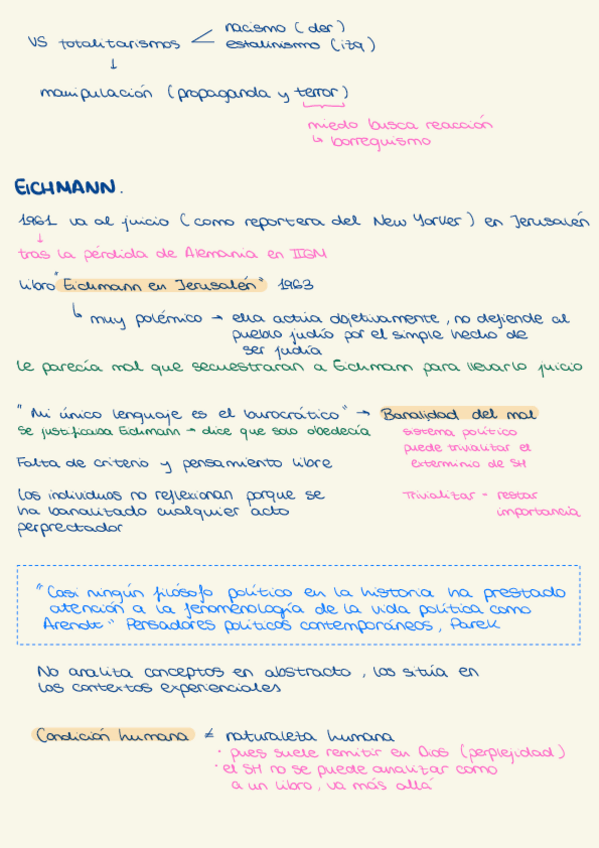 VS totalitarismos < nacismo (der)
estalinismo (izq)
↓
manipulación (propaganda y terror)
miedo busca reacción
↳ borreguismo
EICHMANN.
1961 va al juicio (como reportera del New Yorker) en Jerusalén
↓
tras la pérdida de Alemania en IIGM
libro "Eichmann en Jerusalén" 1963
↳ muy polémico → ella actúa objetivamente, no defiende al
pueblo judío por el simple hecho de
ser judía
le parecía mal que secuestraran a Eichmann para llevarlo juicio
"Mi único lenguaje es el burocrático" → Banalidad del mal
se justificaba Eichmann → dice que solo obedecía
sistema político
puede trivializar el
exterminio de SH
Falta de criterio y pensamiento libre
Los individuos no reflexionan porque se
ha banalizado cualquier acto
perpretador
Trivializar = restar
importancia
"Casi ningún filósofo político en la historia ha prestado
atención a la fenomenología de la vida política como
Arendt" Pensadores políticos contemporáneos, Parek
No analiza conceptos en abstracto, los sitúa en
los contextos experienciales
Condición humana ≠ naturaleza humana
· pues suele remitir en Dios (perplejidad)
· el SH no se puede analizar como
a un libro, va más allá